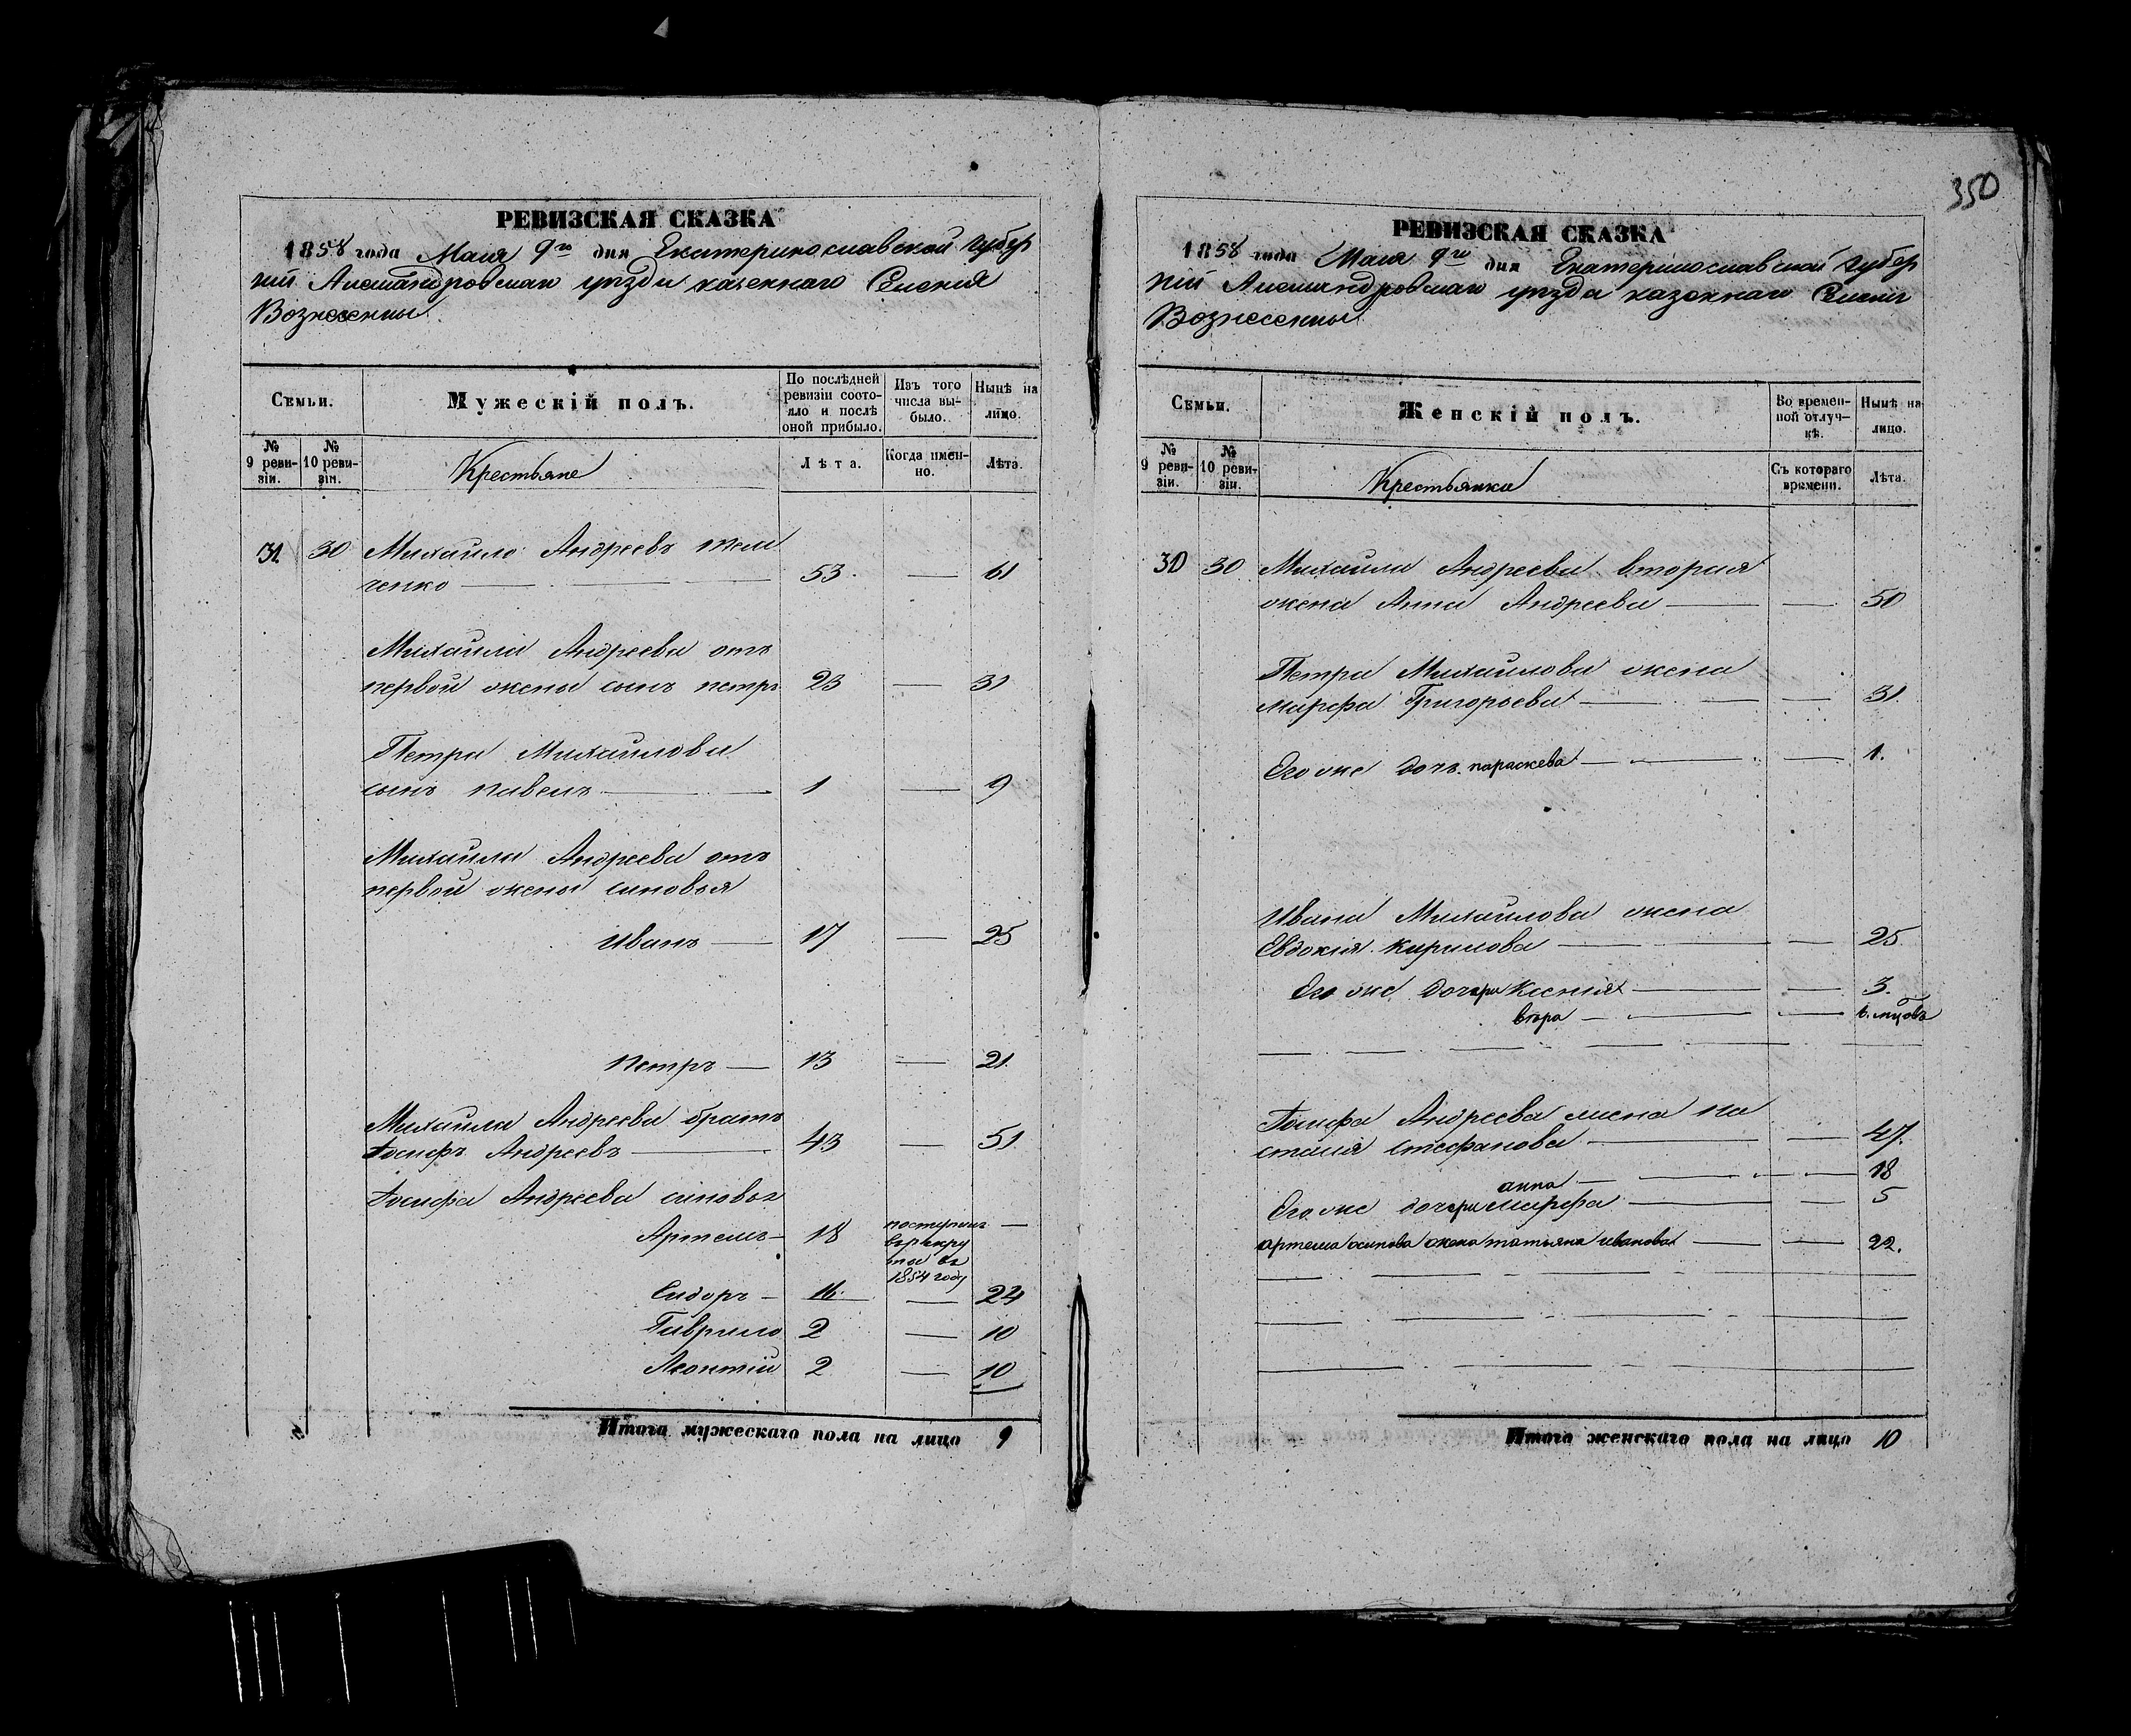 350
РЕВИЗСКАЯ СКАЗКА
1858 года Маия 9го дня Екатеринославской губер
нии Александровскаго уезда казеннаго Селения
Вознесенки
Семьи.
Мужескій полъ.
По послѣдней ревизіи состояло и послѣ оной прибыло.
Изъ того числа выбыло.
Нынѣ на лицо.
№ 9 ревизіи.
№ 10 ревизіи.
Крестьяне
Лѣта.
Когда именно.
Лѣта.
31. 30 Михайло Андреевъ
ченко 53. — 61
Михайла Андреева отъ
первой жены сынъ петръ 23 — 31
Петра Михайлова
сынъ павелъ 1 — 9
Михайла Андреева отъ
первой жены синовья
Иванъ — 17 — 25
Петръ — 13 — 21.
Михайла Андреева братъ
Іосифъ Андреевъ 43 — 51.
Іосифа Андреева синовья
Артемъ — 18 поступилъ —
въ рекру
ты въ
1854 году
Сидоръ — 16. — 24
Гаврило 2 — 10
Леонтій 2 — 10
Итого мужескаго пола на лицо 9
РЕВИЗСКАЯ СКАЗКА
1858 года Маия 9го дня Екатеринославской губер
ній Александровскаго уезда казеннаго Селения
Вознесенки
Семьи.
Женскій полъ.
Во временной отлучкѣ.
Нынѣ на лицо.
№ 9 ревизіи.
№ 10 ревизіи.
Крестьянки
Съ котораго времени.
Лѣта.
30 30 Михайла Андреева вторая
жена Анна Андреева — — 50
Петра Михайлова жена
марфа Григорьева — — 31.
Его же дочь параскева — — 1.
Ивана Михайлова жена
Евдокія Кирилова — — 25.
Его же дочери Ксенія — — 3.
вѣра — — 6. мцовъ
Іосифа Андреева жена На
сталія Стефанова — — 47.
анна — — 18
Его же дочери марфа — — 5
артема осипова жена татьяна иванова — — 22.
Итого женскаго пола на лицо 10